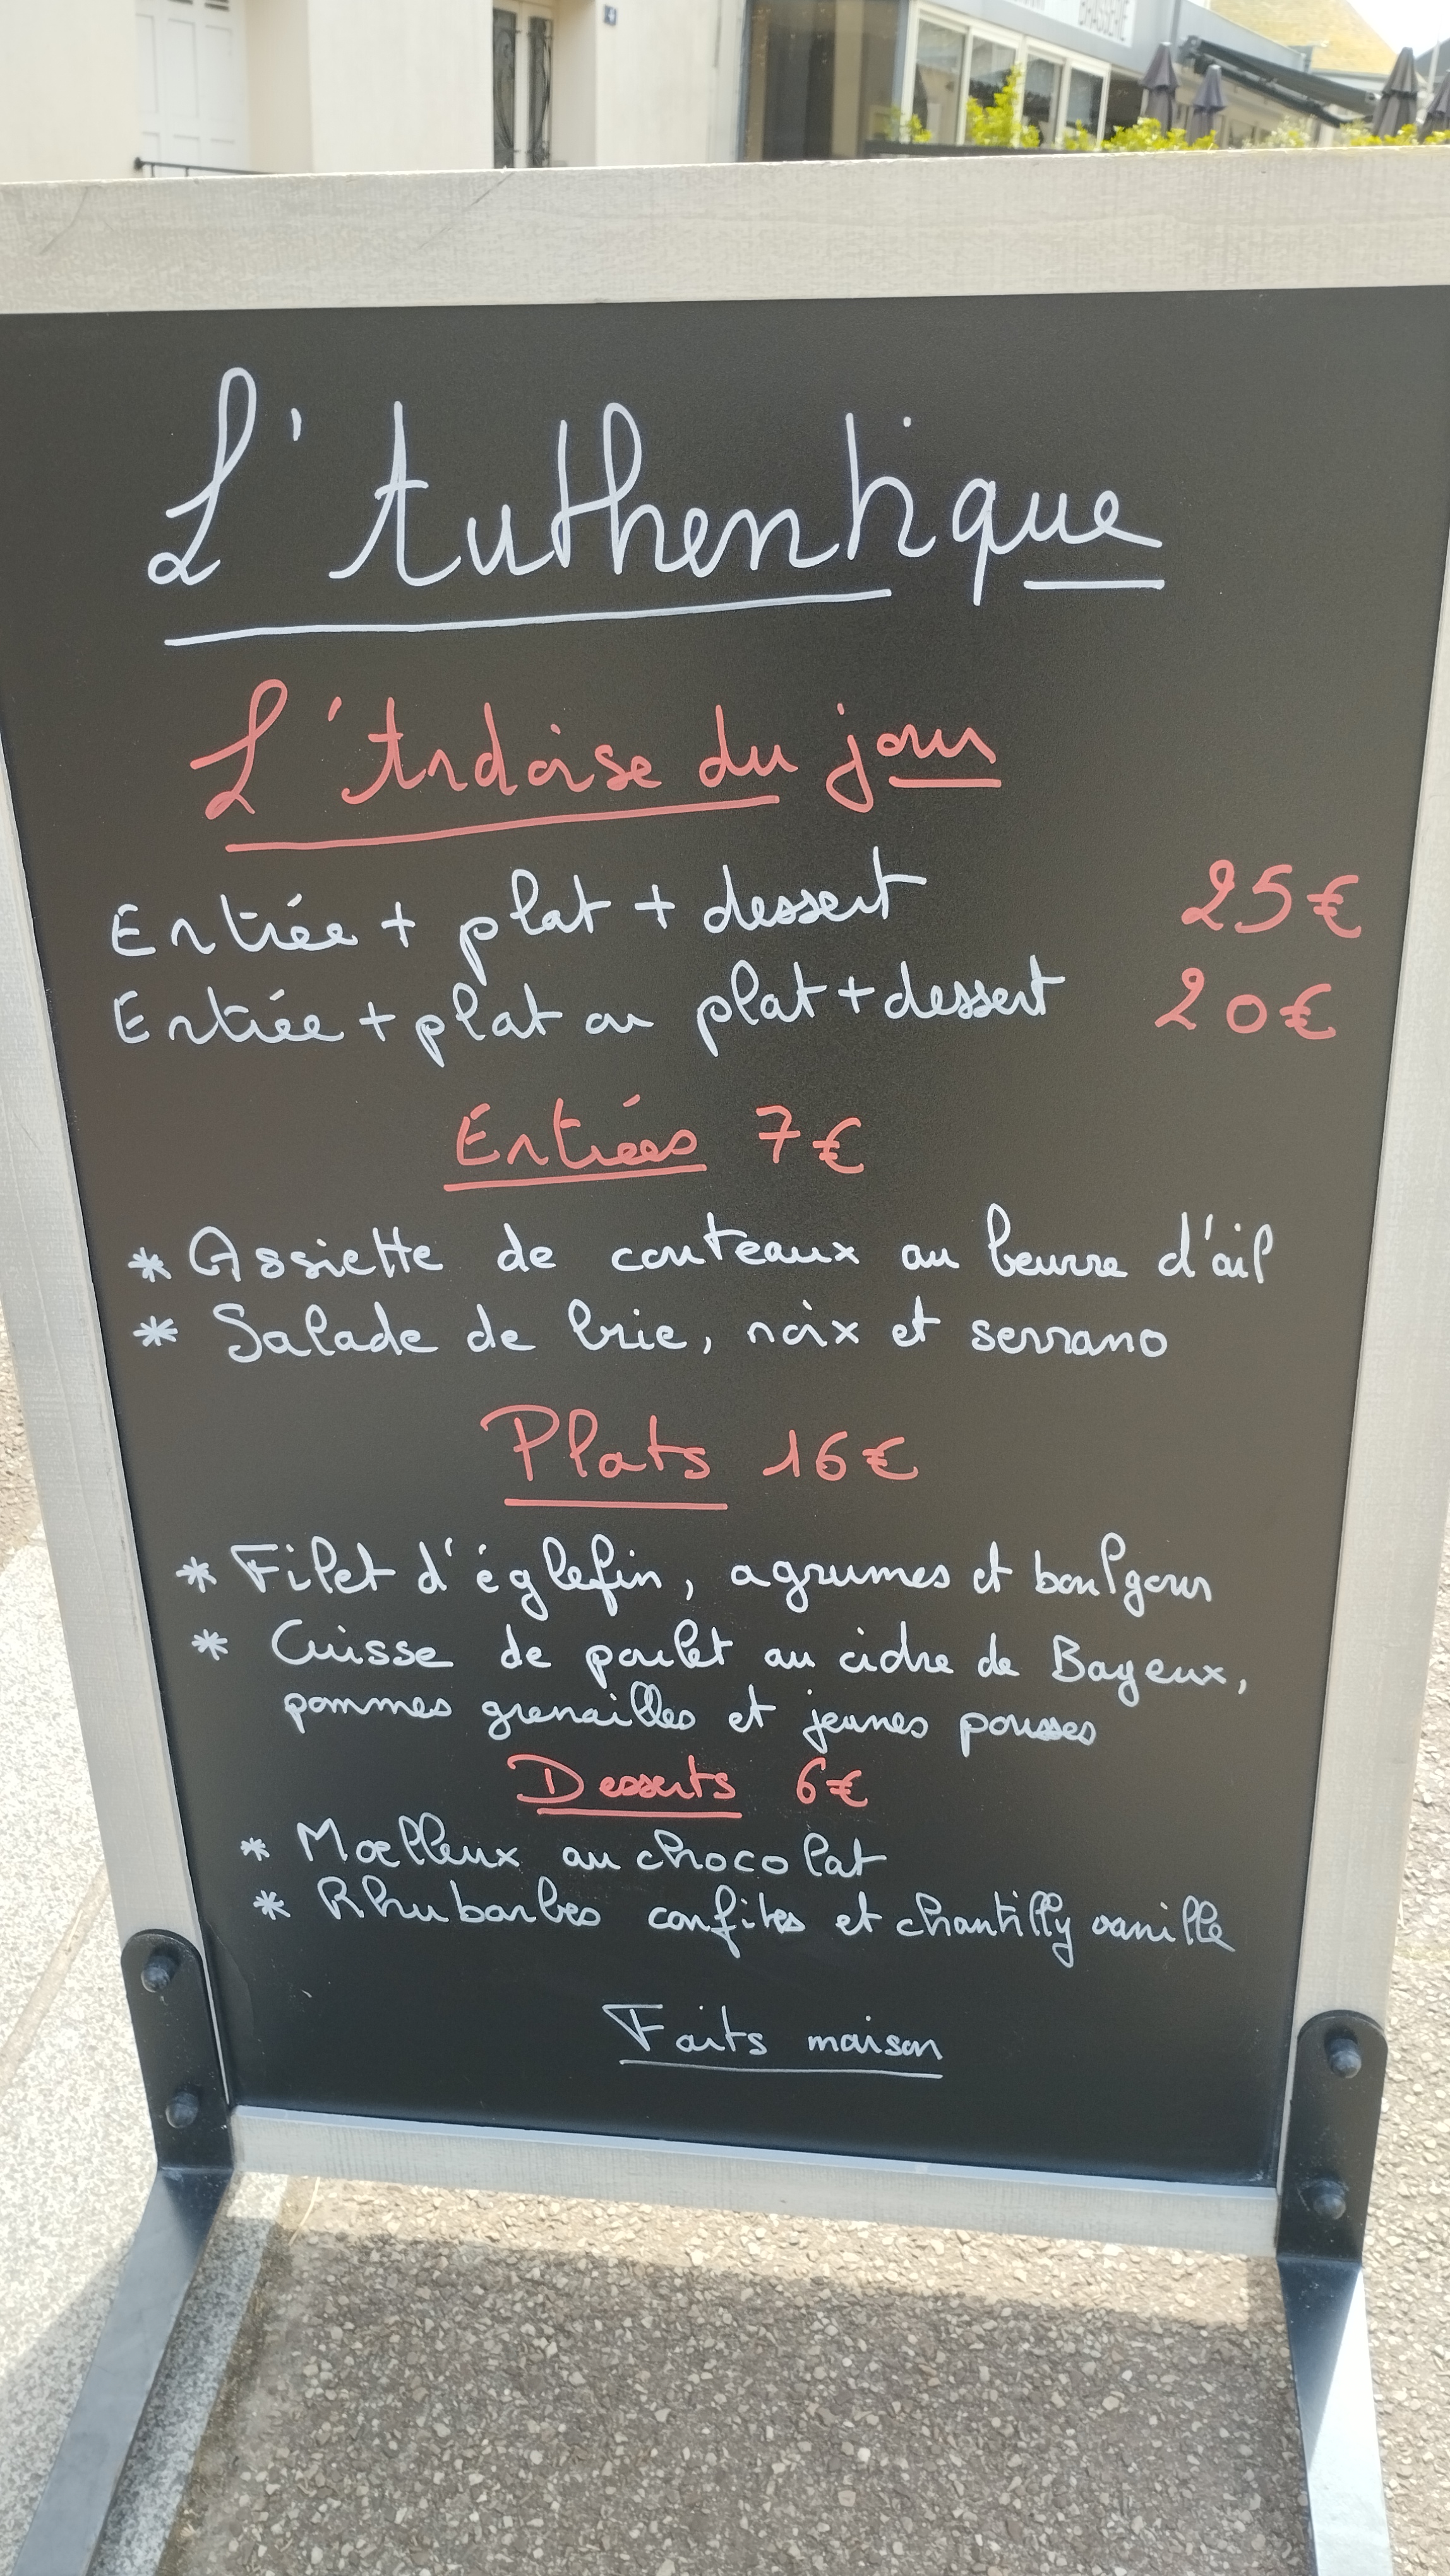 BRASSERIE
L'Authentique
L'Ardoise du jour
Entrée + plat + dessert 25€
Entrée + plat ou plat + dessert 20€
Entrées 7€
* Assiette de couteaux au beurre d'ail
* Salade de brie, noix et serrano
Plats 16€
* Filet d'églefin, agrumes et boulgour
* Cuisse de poulet au cidre de Bayeux,
pommes grenailles et jeunes pousses
Desserts 6€
* Moelleux au chocolat
* Rhubarbes confites et chantilly vanille
Faits maison